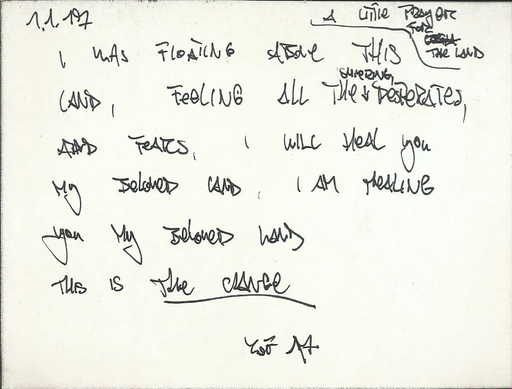 1.1.197
A LITTLE PRAYER
FOR
THE LAND
I WAS FLOATING ABOVE THIS
SUFFERING,
LAND, FEELING ALL THE DESPERATES,
AND FEARS, I WILL HEAL YOU
MY BELOVED LAND, I AM HEALING
YOU MY BELOVED LAND
THIS IS THE CHANGE